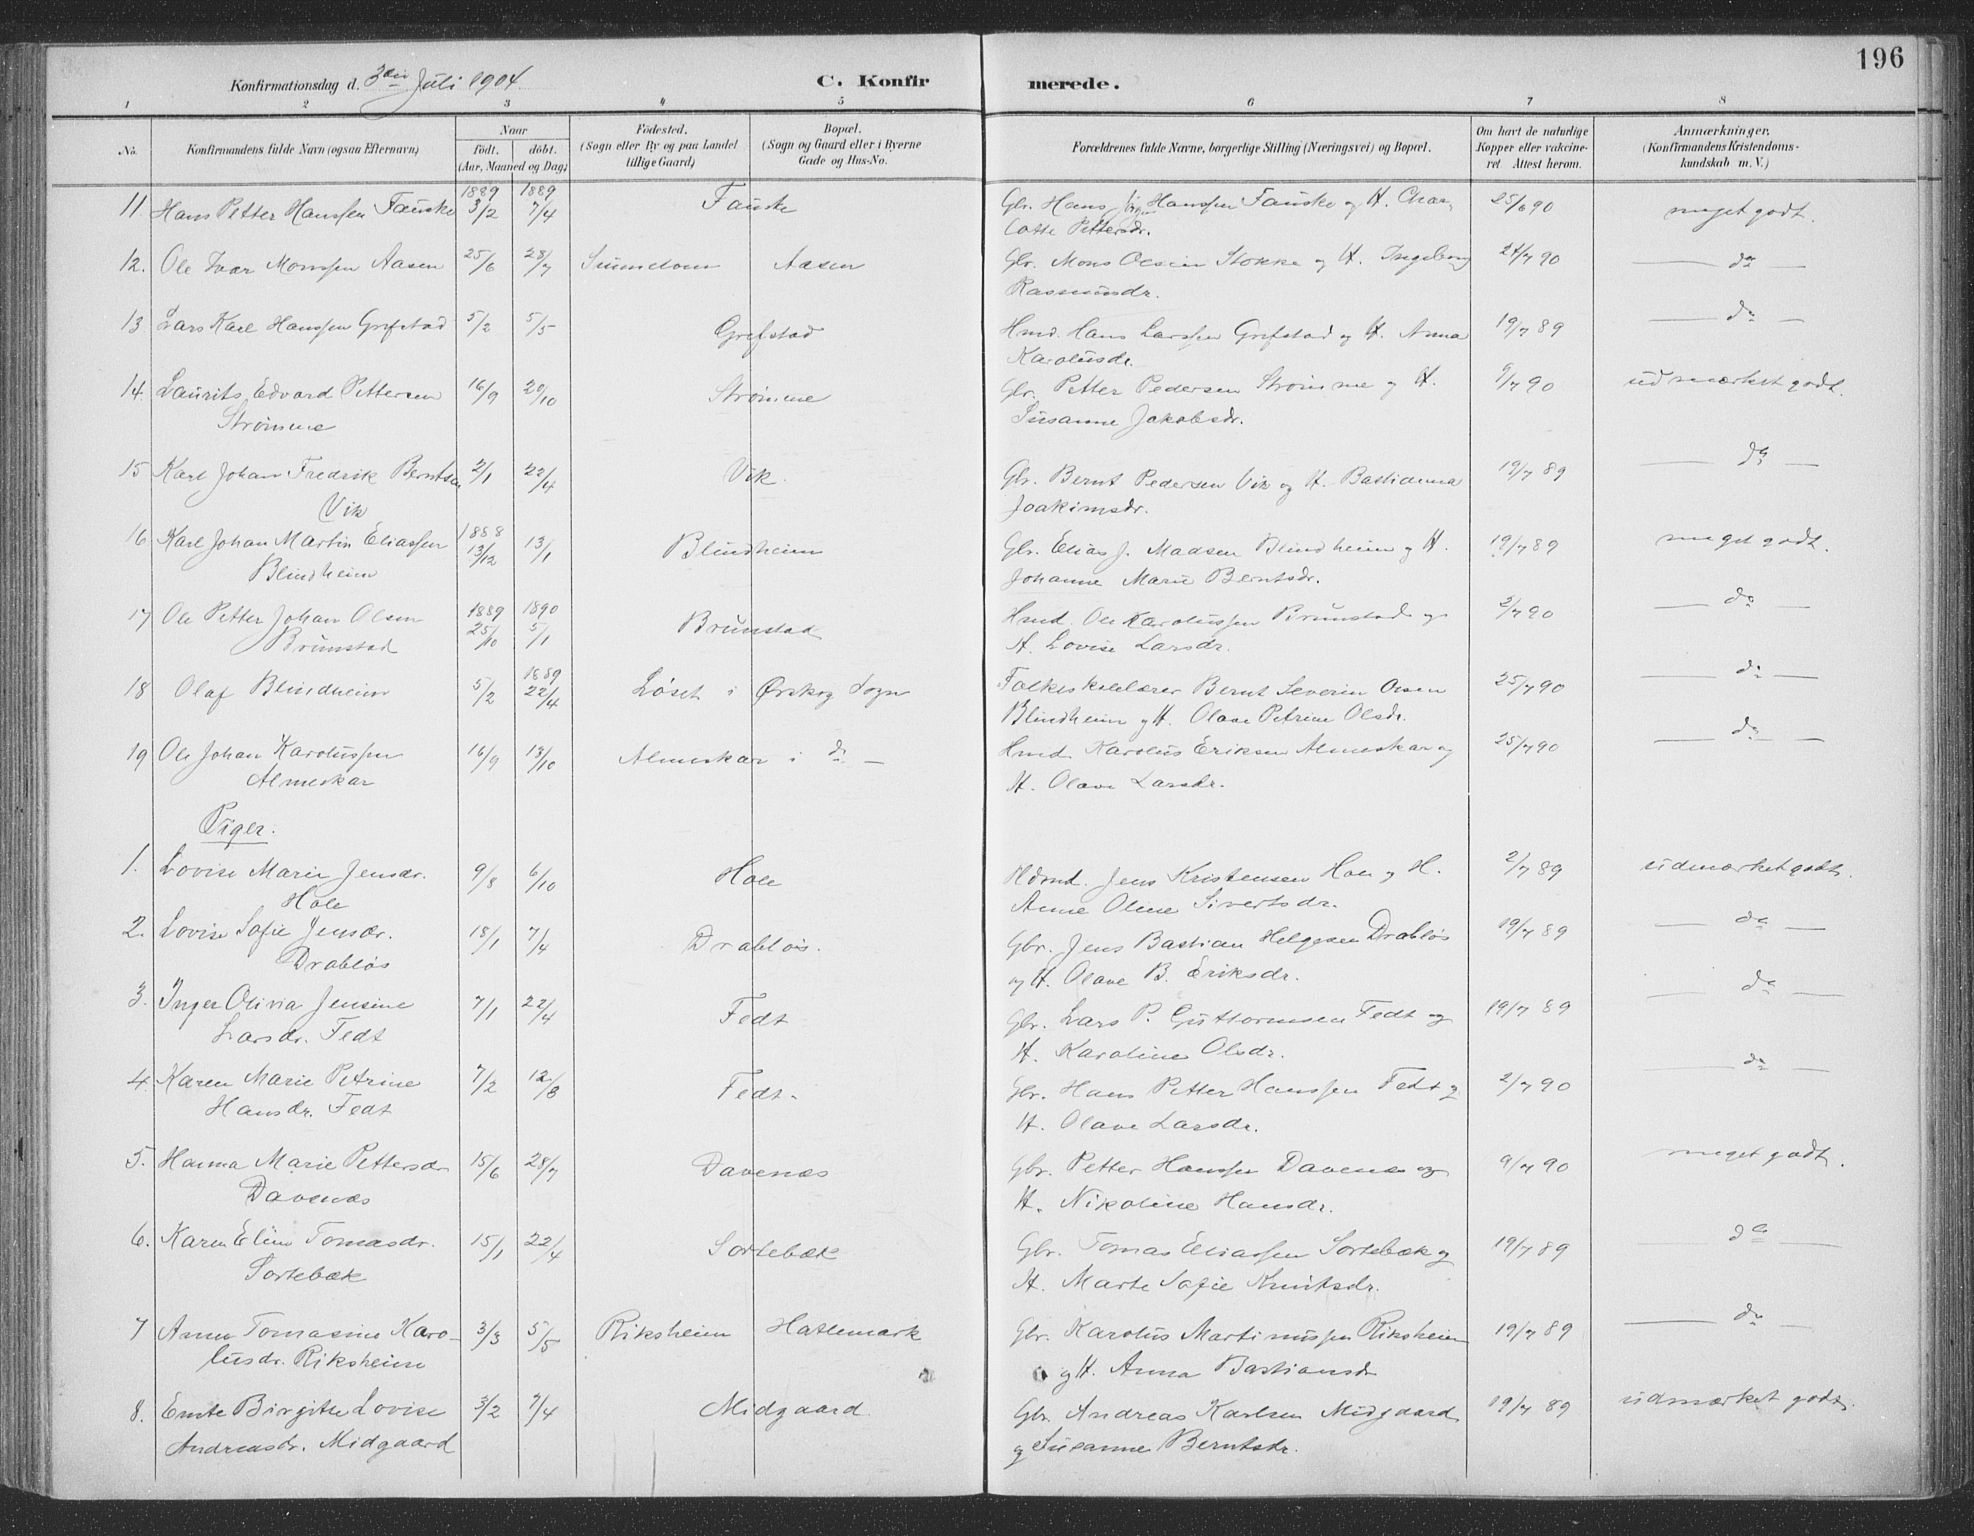 196
Konfirmationsdag d. 3die Juli 1904.
C. Konfirmerede.
1 2 3 4 5 6 7 8
No. Konfirmandens fulde Navn (ogsaa Efternavn). Naar født. døbt. (Aar, Maaned og Dag) Fødested. (Sogn eller By og paa Landet tillige Gaard) Bopæl. (Sogn og Gaard eller i Byerne Gade og Hus-No. Forældrenes fulde Navne, borgerlige Stilling (Næringsvei) og Bopæl. Om havt de naturlige Kopper eller vakcineret Attest herom. Anmærkninger, (Konfirmandens Kristendomskundskab m. V.)
1889 1889
11. Hans Petter Hanssen Fauske 3/2 7/4 Fauske Gbr. Hans Hanssen Fauske og H. Char- 25/6 90 meget godt.
lotte Pettersdr.
12. Ole Ivar Monssen Aasen 25/6 28/7 Aasen Gbr. Mons Olsen Stokke og H. Ingeborg 24/7 90 do
Rasmusdr.
13 Lars Karl Hanssen Grefstad 5/2 5/5 Grefstad Hmd. Hans Larssen Grefstad og H. Anna 19/7 89 do
Karolusdr.
14. Laurits Edvard Pettersen 16/9 20/10 Strømme Gbr. Petter Pedersen Strømme og H. 9/7 90 udmærket godt.
Strømme Susanne Jakobsdr.
15 Karl Johan Fredrik Berntsen 2/1 22/4 Vik. Gbr. Bernt Pedersen Vik og H. Bastianna 19/7 89 do
Vik Joakimsdr.
16 Karl Johan Martin Eliassen 1888 13/12 13/1 Blindheim Gbr. Elias J. Madsen Blindheim og H. 19/7 89 meget godt.
Blindheim Johanne Marie Berntsdr.
17 Ole Petter Johan Olsen 1889 25/10 1890 5/1 Brunstad Hmd. Ole Karolussen Brunstad og 2/7 90 do
Brunstad H. Lovise Larsdr.
18 Olaf Blindheim 5/2 1889 22/4 Løset i Ørskog Sogn Folkeskolelærer Bernt Severin Olsen 25/7 90 do
Blindheim og H. Olave Petrine Olsdr.
19 Ole Johan Karolussen 16/9 13/10 Almeskar i do Hmd. Karolus Eriksen Almeskar og 25/7 90 do
Almeskar H. Olave Larsdr.
Piger.
1. Lovise Marie Jensdr. 9/8 6/10 Hole Jens Kristensen Hole og H. 2/7 89 udmærket godt.
Hole Anne Oline Sivertsdr.
2. Lovise Sofie Jensdr. 18/1 7/4 Drabløs. Gbr. Jens Bastian Helgesen Drabløs 19/7 89 do
Drabløs og H. Olave B. Eriksdr.
3. Inger Olivia Jensine 7/1 22/4 Fedt Gbr. Lars P. Guttormsen Fedt og 19/7 89 do
Larsdr. Fedt H. Karoline Olsdr.
4. Karen Marie Petrine 7/2 Fedt. Gbr. Hans Petter Hanssen Fedt og 2/7 90 do
Hansdr. Fedt H. Olave Larsdr.
5. Hanna Marie Pettersdr 15/6 28/7 Davenæs Gbr. Petter Hanssen Davenæs og 9/7 90 meget godt.
Davenæs H. Nikoline Hansdr.
6. Karen Eline Tomasdr. 15/1 22/4 Sortebæk Gbr. Tomas Eliassen Sortebæk og 19/7 89 do
Sortebæk H. Marte Sofie Knutsdr.
7 Anna Tomasine Karo- 3/3 5/5 Riksheim Hatlemark Gbr. Karolus Martinussen Riksheim 19/7 89 do
lusdr. Riksheim og H. Anna Bastiansdr
8. Birgitte Lovise 3/2 7/4 Midgaard Gbr. Andreas Karlsen Midgaard 19/7 89 udmærket godt.
Andreasdr. Midgaard og Susanne Berntsdr.